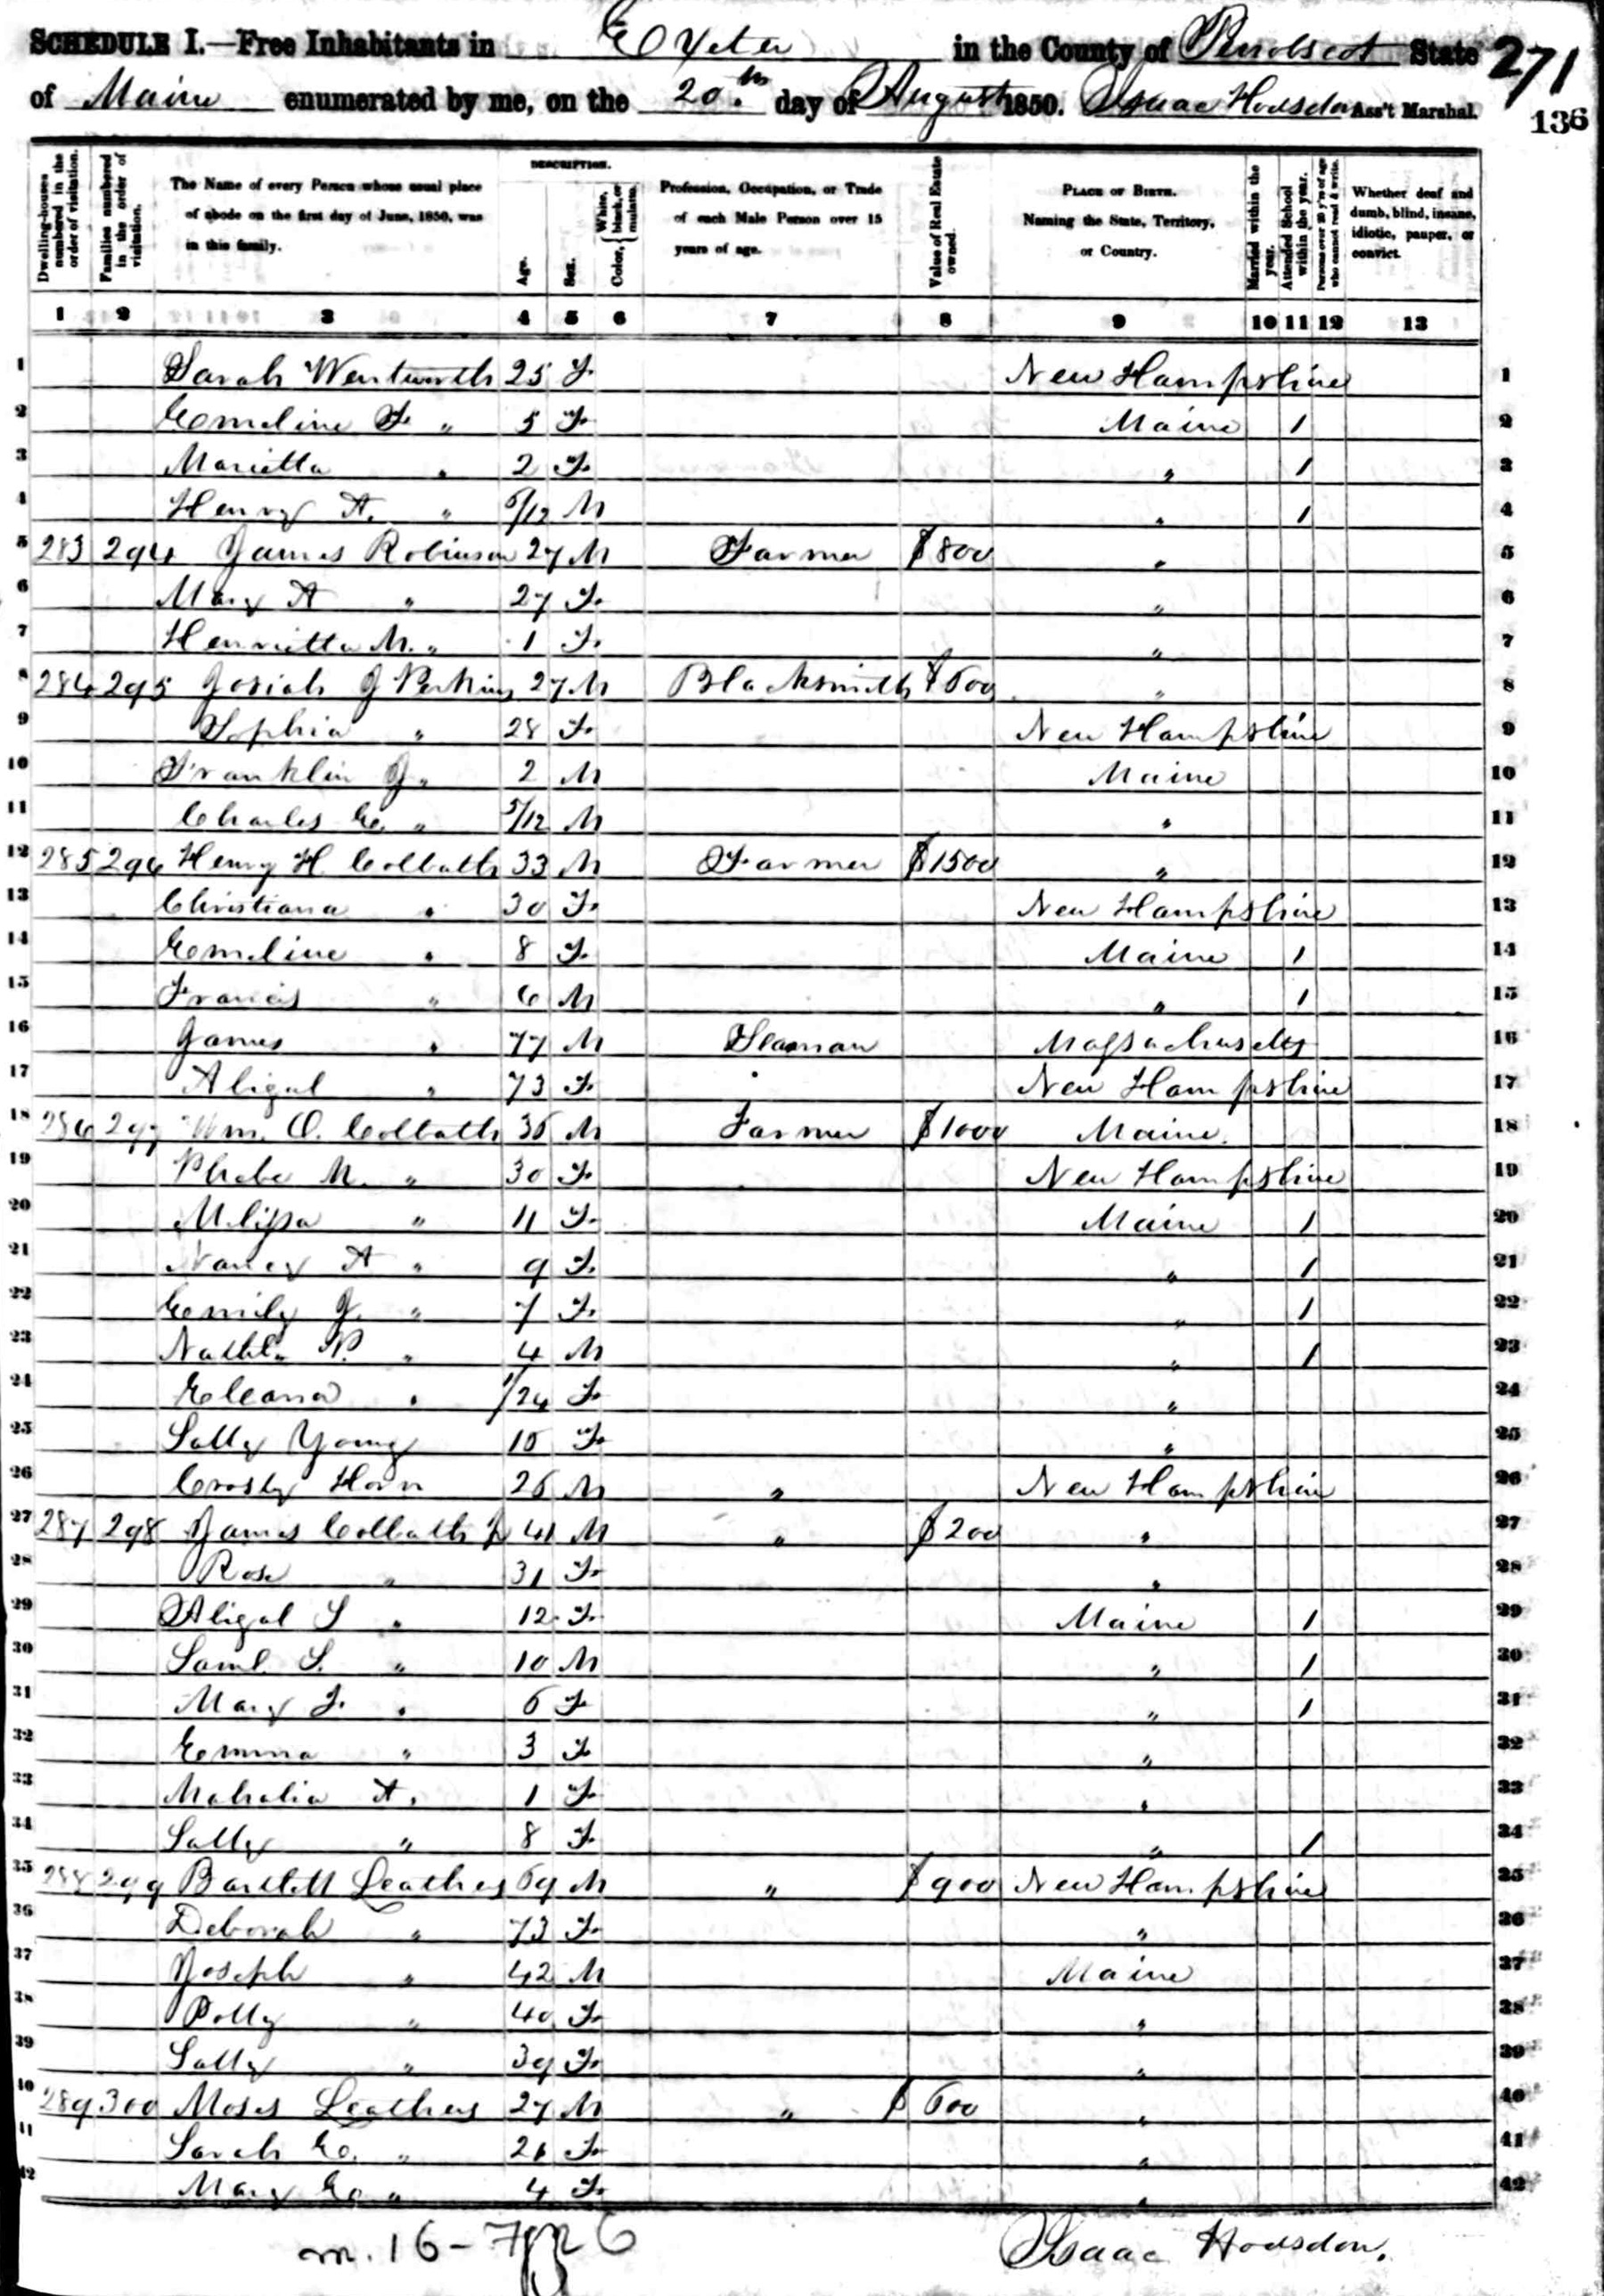 SCHEDULE I.—Free Inhabitants in Exeter in the County of Penobscot State 271
of Maine enumerated by me, on the 20.th day of August 1850. Isaac Hodsdon Ass't Marshal.
136
Dwelling-houses numbered in the order of visitation.
Families numbered in the order of visitation.
The Name of every Person whose usual place of abode on the first day of June, 1850, was in this family.
DESCRIPTION.
Age.
Sex.
Color, White, black, or mulatto.
Profession, Occupation, or Trade of each Male Person over 15 years of age.
Value of Real Estate owned.
PLACE OF BIRTH. Naming the State, Territory, or Country.
Married within the year.
Attended School within the year.
Persons over 20 y'rs of age who cannot read & write.
Whether deaf and dumb, blind, insane, idiotic, pauper, or convict.
1 2 3 4 5 6 7 8 9 10 11 12 13
1 Sarah Wentworth 25 F. New Hampshire 1
2 Emeline F. " 5 F. Maine 1 2
3 Marietta " 2 F. " 1 3
4 Henry A. " 5/12 M " 1 4
5 283 294 James Robinson 27 M Farmer $800 " 5
6 Mary A " 27 F. " 6
7 Henrietta M. " 1 F. " 7
8 284 295 Josiah J Perkins 27 M Blacksmith $600 " 8
9 Sophia " 28 F. New Hampshire 9
10 Franklin J " 2 M Maine 10
11 Charles E. " 5/12 M " 11
12 285 296 Henry H. Colbath 33 M Farmer $1500 " 12
13 Christiana " 30 F. New Hampshire 13
14 Emeline " 8 F. Maine 1 14
15 Francis " 6 M " 1 15
16 James " 77 M Seaman Massachusetts 16
17 Abigal " 73 F. New Hampshire 17
18 286 297 Wm. O. Colbath 36 M Farmer $1000 Maine. 18
19 Phebe M. " 30 F. New Hampshire 19
20 Melissa " 11 F. Maine 1 20
21 Nancy A " 9 F. " 1 21
22 Emily J. " 7 F. " 1 22
23 Nathl. P. " 4 M " 1 23
24 Eleana " 1/24 F. " 24
25 Sally Young 15 F. " 25
26 Crosby Horn 26 M " New Hampshire 26
27 287 298 James Colbath Jr 41 M " $200 " 27
28 Rose " 31 F. " 28
29 Abigal S " 12 F. Maine 1 29
30 Saml. S. " 10 M " 1 30
31 Mary F. " 6 F " 1 31
32 Emma " 3 F. " 32
33 Mahalia A. 1 F. " 33
34 Sally " 8 F. " 1 34
35 288 299 Bartlett Leathers 69 M " $900 New Hampshire 35
36 Deborah " 73 F. " 36
37 Joseph " 42 M Maine 37
38 Polly " 40 F. " 38
39 Sally " 39 F. " 39
40 289 300 Moses Leathers 27 M " $600 " 40
41 Sarah E. " 26 F. " 41
42 Mary E. " 4 F. " 42
m. 16-
Isaac Hodsdon.